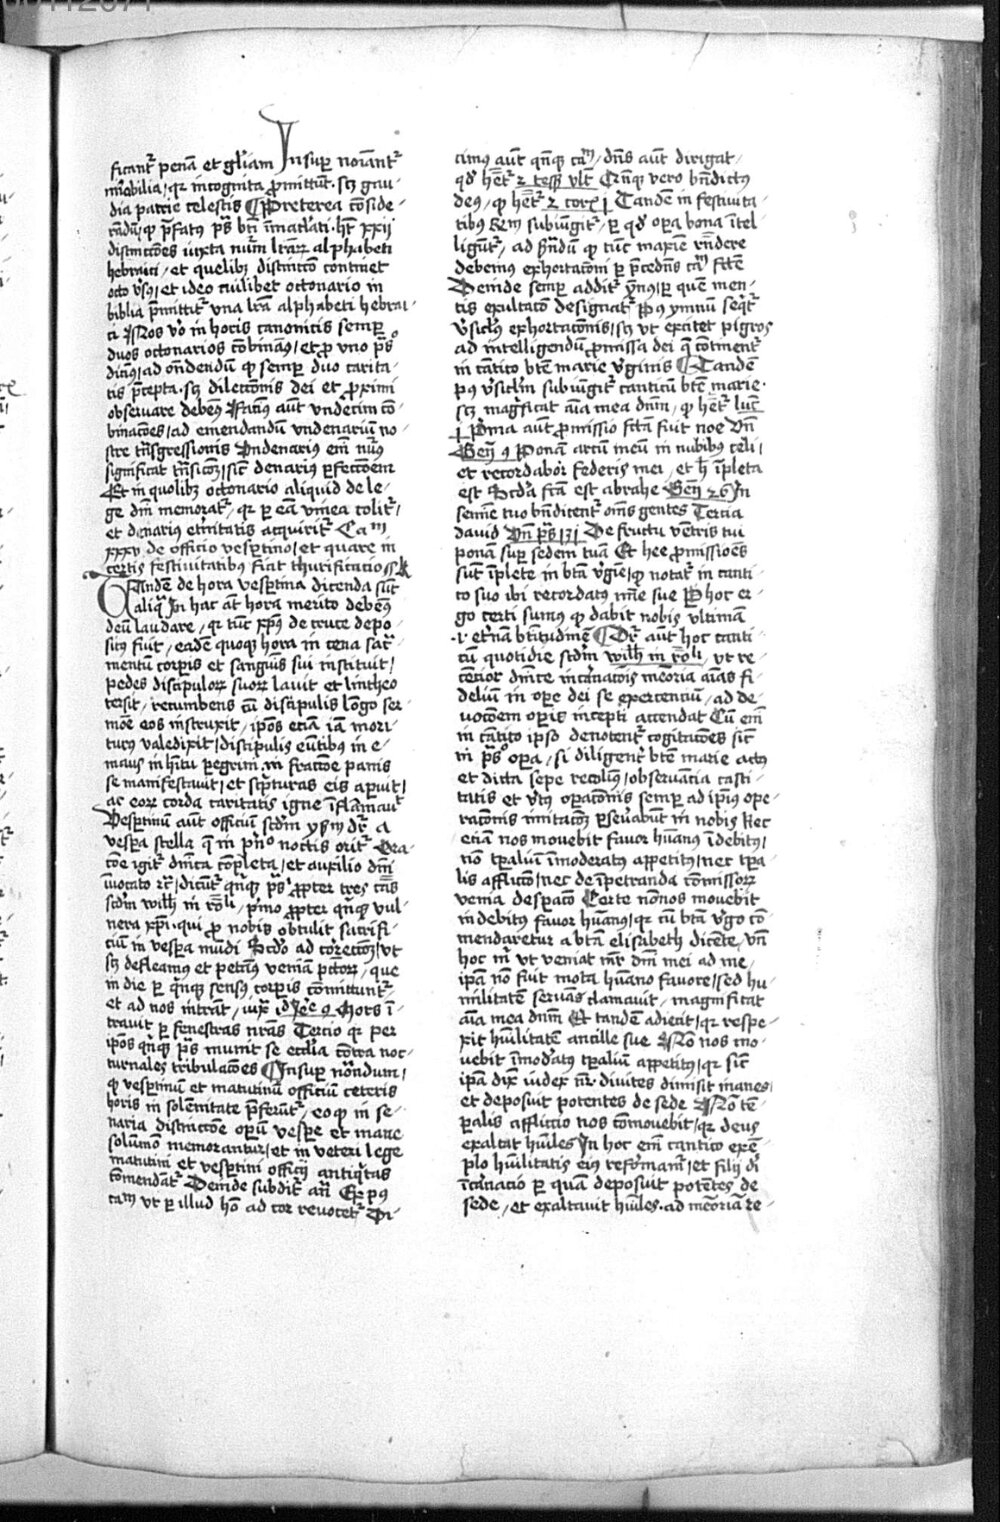 ficant᷑ penā et gl̄iam Insuper noīant᷑
mirabilia / qr incognita ꝓmittūt · scꝫ gau-
dia patrie celestis ¶ Preterea cōside-
randū ꝙ p̄fatꝰ p̄s btī īmaclati · hꝫ xxij
distinctōes iuxta nūm lrāꝝ alphabeti
hebraici / et quelibꝫ distinctō continet
octo v̄sꝰ / et ideo cuilibet octonario in
biblia p̄mittit᷑ vna lrā alphabeti hebrai-
ci Nos v̄o in horis canonicis semꝑ
duos octonarios cōbinamꝰ / et ꝓ vno p̄s
dicimꝰ / ad on̄dendū ꝙ semꝑ duo carita-
tis p̄cepta · scꝫ dilectionis dei et ꝓximi
obseruare debemꝰ Facimꝰ aūt vndecim cō-
binacōes / ad emendandū vndenariū no-
stre tn̄sgressionis Vndenarius em̄ nūs
significat tn̄sicōꝫ / sicut denarius ꝑfectōem
Et in quolibꝫ octonario aliquid de le-
ge dn̄i memorat᷑ / qr ꝑ eā vinea colit᷑ /
et denarius et̄nitatis acquirit᷑ Ca m
xxxv de officio vesꝑtino / et quare in
certis festiuitatibus fiat thurificatio ss R
Tandē de hora vesꝑtina dicenda sūt
aliq̄ In hac aūt hora merito debemꝰ
deū laudare / qr tūc xp̄us de cruce depo-
situs fuit / eadē quoqꝫ hora in cena sac̄-
mentū corporis et sanguīs sui instituit /
pedes discipuloꝝ suoꝝ lauit et lintheo
tersit / recumbens cū discipulis lōgo ser-
mōe eos instruxit / ip̄os eciā iā mori-
turus valedixit / discipulis eūtibus in e-
maus in hītu peregrini in fractōe panis
se manifestauit / et scp̄turas eis aꝑuit /
ac eoꝝ corda caritatis igne īflāmauit
Vesꝑtinū aūt officiū scd̄m ysid d̄r a
vesꝑa stella q̄ in p̄n̄o noctis orit᷑ Ora-
cōe igit᷑ dn̄ica cōpleta / et auxilio dn̄i
īuocato rc̄ / dicūt᷑ qn̄qꝫ p̄s ꝓpter tres cās
scd̄m wilh̄ in rōli / p̄mo ꝓpter qn̄qꝫ vul-
nera xp̄i · qui ꝓ nobis obtulit sacrifi-
ciū in vesꝑa mūdi Scd̄o ad correctōꝫ / vt
scꝫ defleamus et petamꝰ veniā pctōꝝ / que
in die ꝑ qn̄qꝫ sensꝰ corpis cōmittunt᷑
et ad nos intrāt / iuxͣ id Jere 9 Mors ī-
trauit ꝑ fenestras nrās Tercio qr per
ip̄os qn̄qꝫ p̄s munit se ecclīa cōtra noc-
turnales tribulacōes ¶ Insuper nōandum /
ꝙ vesꝑtinū et matutinū officiū ceteris
horis in solēmitate p̄ferunt᷑ / eo ꝙ in se-
naria distinctōe operū vespe et mane
solūmō memorantur / et in veteri lege
matutini et vesꝑtini officij antiq̄tas
cōmendat᷑ Deinde subdit᷑ an̄ Et pꝰ
cam vt ꝑ illud hō ad cor reuocet᷑ Di-
cimꝰ aūt qn̄qꝫ cam / dn̄s aūt dirigat /
qd̄ het᷑ 2 tess vlt Qn̄qꝫ vero bn̄dictus
deus / ꝙ het᷑ 2 cor I Tandē in festiuita-
tibus Rm̄ subiūgit᷑ / ꝑ qd̄ oꝑa bona ītel-
ligūt᷑ / ad on̄dendū ꝙ tūc maxīe rn̄dere
debemus exhortacōni ꝑ p̄cedn̄s cam fctē
Deinde semꝑ addit᷑ ymnꝰ / ꝑ quē men-
tis exultacō designat᷑ Pꝰ ymnū seq̄t᷑
v̄siclꝰ exhortacōnis / scꝫ vt excitet pigros
ad intelligendū ꝓmissa dei q̄ cōtinent᷑
in cātico btē marie v̄ginis ¶ Tandē
pꝰ v̄siclm̄ subiūgit᷑ canticū btē marie ·
scꝫ magn̄ificat aīa mea dnm̄ / ꝙ het᷑ luc̄
I Prīma aūt ꝓmissio fctā fuit noe Vn̄
Gen̄ 9 Ponā arcū meū in nubibus celi /
et recordabor federis mei / et h̄ īpleta
est Scd̄a fctā est abrahe Gen̄ 26 In
semīe tuo bn̄dicent᷑ om̄s gentes Tercia
dauid Vn̄ p̄s 131 De fructu vētris tui
ponā sup̄ sedem tuā Et hee ꝓmissiōes
sūt īplete in btā v̄gīe / ꝙ notat᷑ in canti-
co suo ibi recordatꝰ mīe sue P̄ hoc er-
go certi sumus ꝙ dabit nobis vltimā
· i · et̄nam btitudinē ¶ D̄r aūt hoc canti-
cū quotidie scd̄m wilh̄ in rōli / vt re-
cencior dn̄ice incarnacōis mēoria aīas fi-
deliū in oꝑe dei se exercenciū / ad de-
uocōem oꝑis incepti accendat Cū em̄
in cātico ipso denotent᷑ cogitacōes sicut
in p̄s oꝑa / si diligent᷑ btē marie actꝰ
et dicta sepe recolimꝰ / obseruācia casti-
tatis et v̄tꝰ oꝑacōnis semꝑ ad ip̄ius oꝑe
racōnis imitacōꝫ ꝑseuabūt in nobis Nec
eciā nos mouebit fauor hūanus īdebitꝰ /
nō tꝑaliū īmoderatꝰ appetitꝰ / nec tꝑa-
lis afflictō / nec de īpetranda cōmissoꝝ
venia desꝑacō Certe nō nos mouebit
indebitus fauor hūanꝰ / qr cū btā v̄go cō-
mendaretur a btā elisabeth dicēte / vn̄
hoc m̄ vt veniat mr̄ dn̄i mei ad me /
ipā nō fuit mota hūano fauore / sed hu-
militatē seruās clamauit / magnificat
aīa mea dnm̄ Et tandē adiecit / qr respe-
xit hūilitatē ancille sue Nō nos mo-
uebit īmod̄atꝰ tꝑaliū appetitꝰ / qr sicut
ipā dix̄ iudex nr̄ diuites dimisit inanes
et deposuit potentes de sede Nō tē-
ꝑalis afflictio nos cōmouebit / qr deus
exaltat hūiles In hoc em̄ cantico exē-
plo hūilitatis eiꝰ reformam᷑ / et filij di
īcarnacio ꝑ quā deposuit potētes de
sede / et exaltauit hūiles · ad mēoriā re-